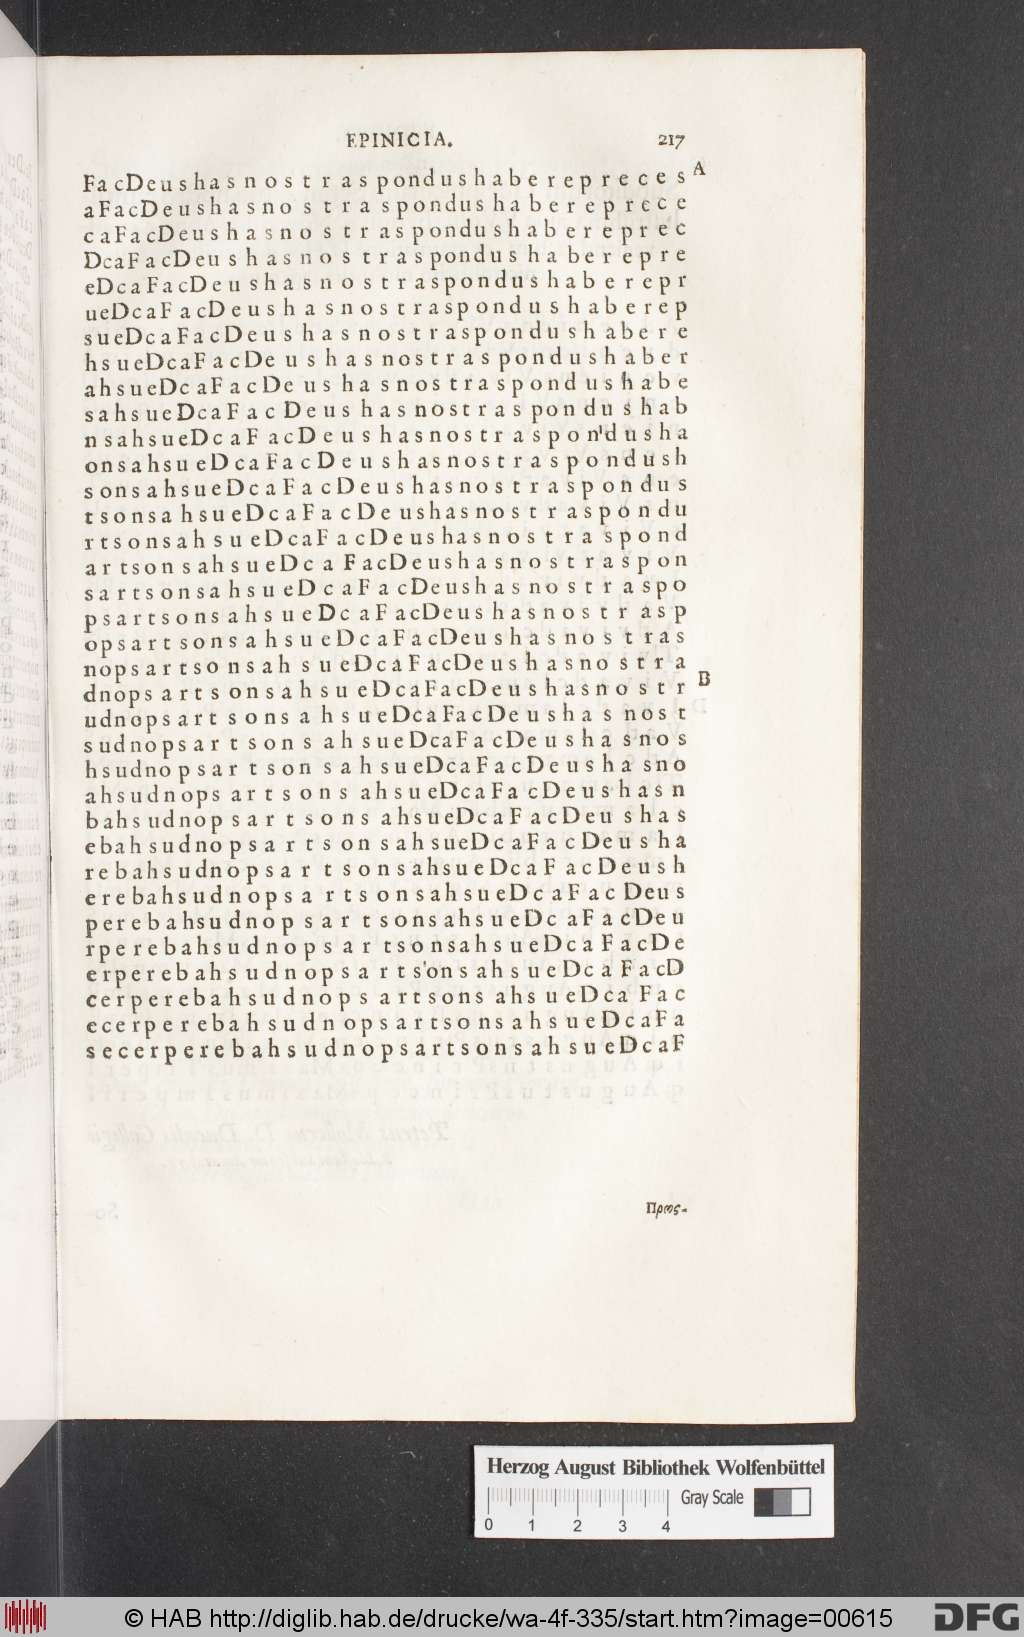 EPINICIA. 217
FacDeushasnostraspondushaberepreces A
aFacDeushasnostraspondushabereprece
caFacDeushasnostraspondushabereprec
DcaFacDeushasnostraspondushaberepre
eDcaFacDeushasnostraspondushaberepr
ueDcaFacDeushasnostraspondushaberep
sueDcaFacDeushasnostraspondushabere
hsueDcaFacDeushasnostraspondushaber
ahsueDcaFacDeushasnostraspondushabe
sahsueDcaFacDeushasnostraspondushab
nsahsueDcaFacDeushasnostraspon'dusha
onsahsueDcaFacDeushasnostraspondush
sonsahsueDcaFacDeushasnostraspondus
tsonsahsueDcaFacDeushasnostraspondu
rtsonsahsueDcaFacDeushasnostraspond
artsonsahsueDcaFacDeushasnostraspon
sartsonsahsueDcaFacDeushasnostraspo
psartsonsahsueDcaFacDeushasnostrasp
opsartsonsahsueDcaFacDeushasnostras
nopsartsonsahsueDcaFacDeushasnostra
dnopsartsonsahsueDcaFacDeushasnostr B
udnopsartsonsahsueDcaFacDeushasnost
sudnopsartsonsahsueDcaFacDeushasnos
hsudnopsartsonsahsueDcaFacDeushasno
ahsudnopsartsonsahsueDcaFacDeushasn
bahsudnopsartsonsahsueDcaFacDeushas
ebahsudnopsartsonsahsueDcaFacDeusha
rebahsudnopsartsonsahsueDcaFacDeush
erebahsudnopsartsonsahsueDcaFacDeus
perebahsudnopsartsonsahsueDcaFacDeu
rperebahsudnopsartsonsahsueDcaFacDe
erperebahsudnopsarts'onsahsueDcaFacD
cerperebahsudnopsartsonsahsueDcaFac
ecerperebahsudnopsartsonsahsueDcaFa
secerperebahsudnopsartsonsahsueDcaF
Προς-
Herzog August Bibliothek Wolfenbüttel
Gray Scale
0 1 2 3 4
© HAB http://diglib.hab.de/drucke/wa-4f-335/start.htm?image=00615 DFG